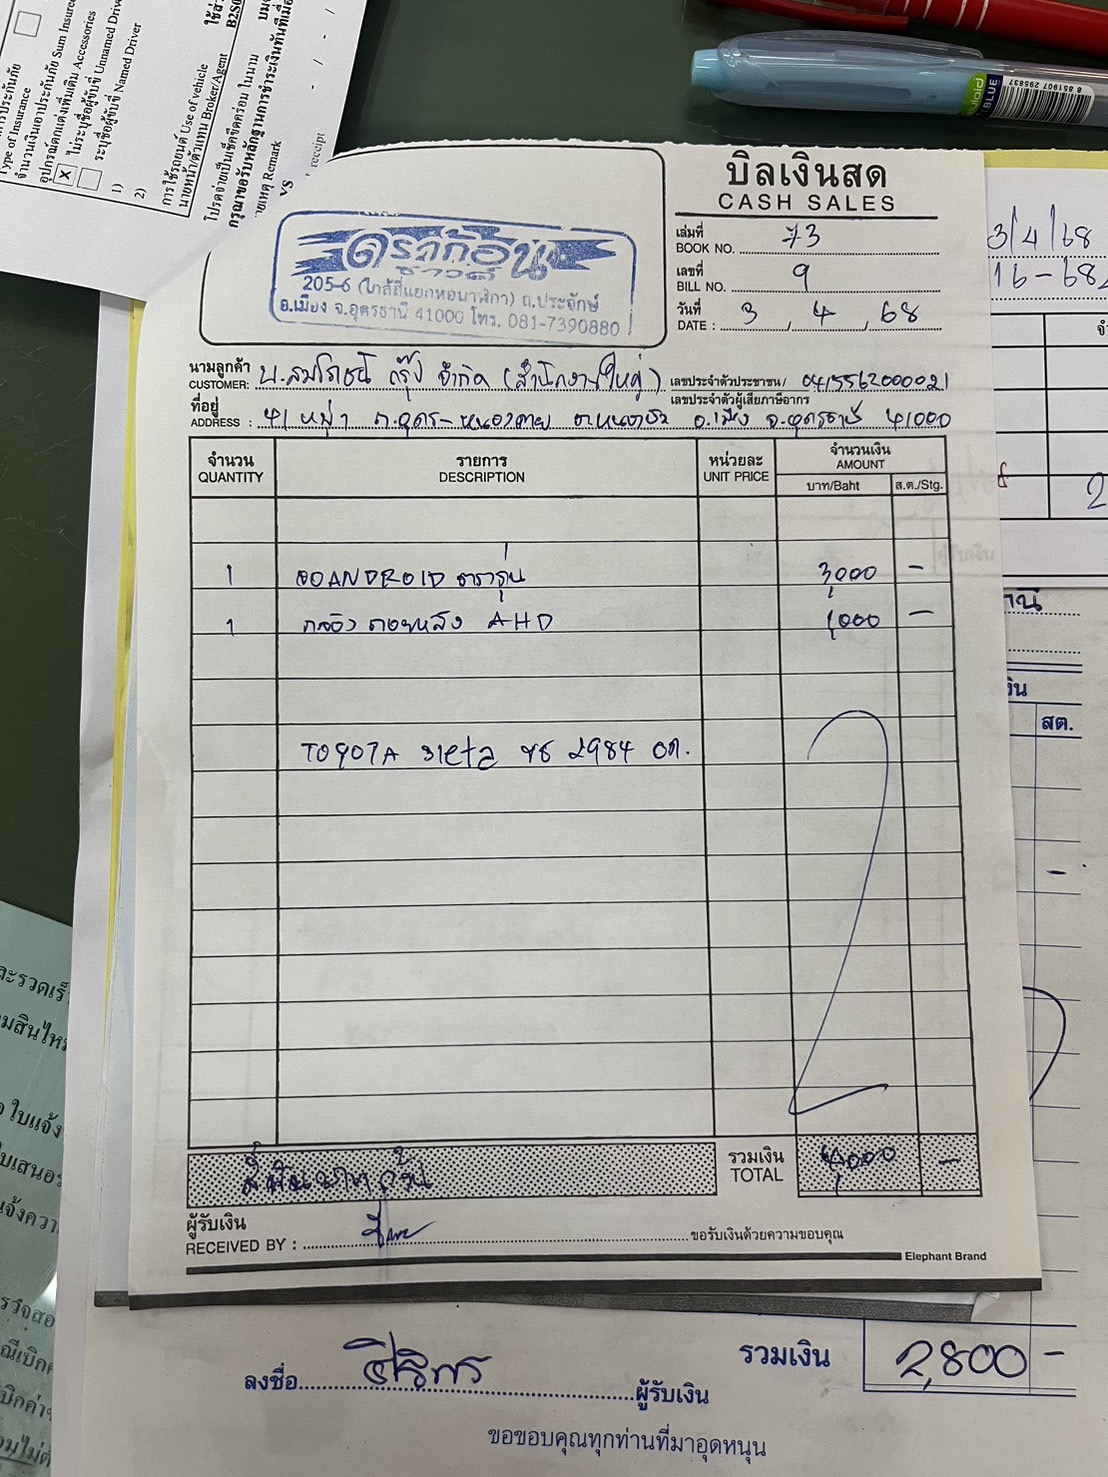 Type of Insurance
จำนวนเงินเอาประกันภัย Sum Insured
อุปกรณ์ตกแต่งเพิ่มเติม Accessories
X ไม่ระบุชื่อผู้ขับขี่ Unnamed Driver
ระบุชื่อผู้ขับขี่ Named Driver
1)
2)
การใช้รถยนต์ Use of vehicle
นายหน้า/ตัวแทน Broker/Agent
โปรดจ่ายเป็นเช็คขีดคร่อม ในนาม
กรุณาขอรับหลักฐานการชำระเงินทันทีเมื่อ
Remark
receipt
BLUE
8 851907 295837
บิลเงินสด
CASH SALES
ดราก้อน
ซาวด์
205-6 (ใกล้สี่แยกหอนาฬิกา) ถ.ประจักษ์
อ.เมือง จ.อุดรธานี 41000 โทร. 081-7390880
เล่มที่
BOOK NO. 73
เลขที่
BILL NO. 9
วันที่
DATE : 3 / 4 / 68
นามลูกค้า
CUSTOMER: บ.สมโภชน์ กรุ๊ป จำกัด (สำนักงานใหญ่)
เลขประจำตัวประชาชน/
เลขประจำตัวผู้เสียภาษีอากร 0415562000021
ที่อยู่
ADDRESS : 41 หมู่ 1 ถ.อุดร-หนองคาย ต.หนองบัว อ.เมือง จ.อุดรธานี 41000
จำนวน รายการ หน่วยละ จำนวนเงิน
QUANTITY DESCRIPTION UNIT PRICE AMOUNT
บาท/Baht ส.ต./Stg.
1 จอANDROID ตรงรุ่น 3,000 -
1 กล้อง ถอยหลัง AHD 1,000 -
TOYOTA sieta ขธ 2984 อด.
รวมเงิน
TOTAL 4,000 -
สี่พันบาทถ้วน
ผู้รับเงิน
RECEIVED BY :
ขอรับเงินด้วยความขอบคุณ
Elephant Brand
3/4/68
สต.
-
รวมเงิน 2,800 -
ลงชื่อ ผู้รับเงิน
ขอขอบคุณทุกท่านที่มาอุดหนุน